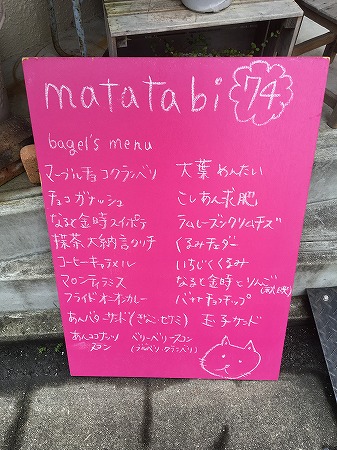 matatabi 74
bagel's menu
マーブルチョコクランベリ
チョコガナッシュ
なると金時スイポテ
抹茶大納言クリチ
コーヒーキャラメル
マロンティラミス
フライドオニオンカレー
あんバターサンド(きんこ・セサミ)
あんココナッツ
スコン
大葉めんたい
こしあん求肥
ラムレーズンクリームチーズ
くるみチェダー
いちじくくるみ
なると金時とりんご
バナナチョコチップ
玉子サンド
ベリーベリースコン
(ブルベリ・クランベリ)